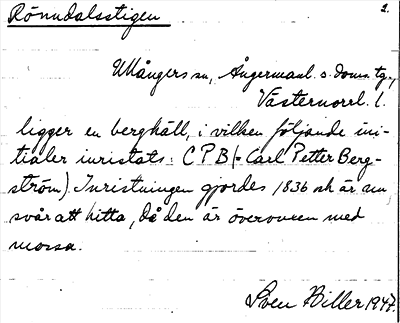 Rönndalsstigen
2.
Ullångers sn, Ångermanl. s. doms. tg.,
Västernorrl. l.
ligger en berghäll, i vilken följande ini-
tialer inristats: C P B (= Carl Petter Berg-
ström). Inristningen gjordes 1836 och är nu
svår att hitta, då den är övervuxen med
mossa.
Sven Biller 1947.